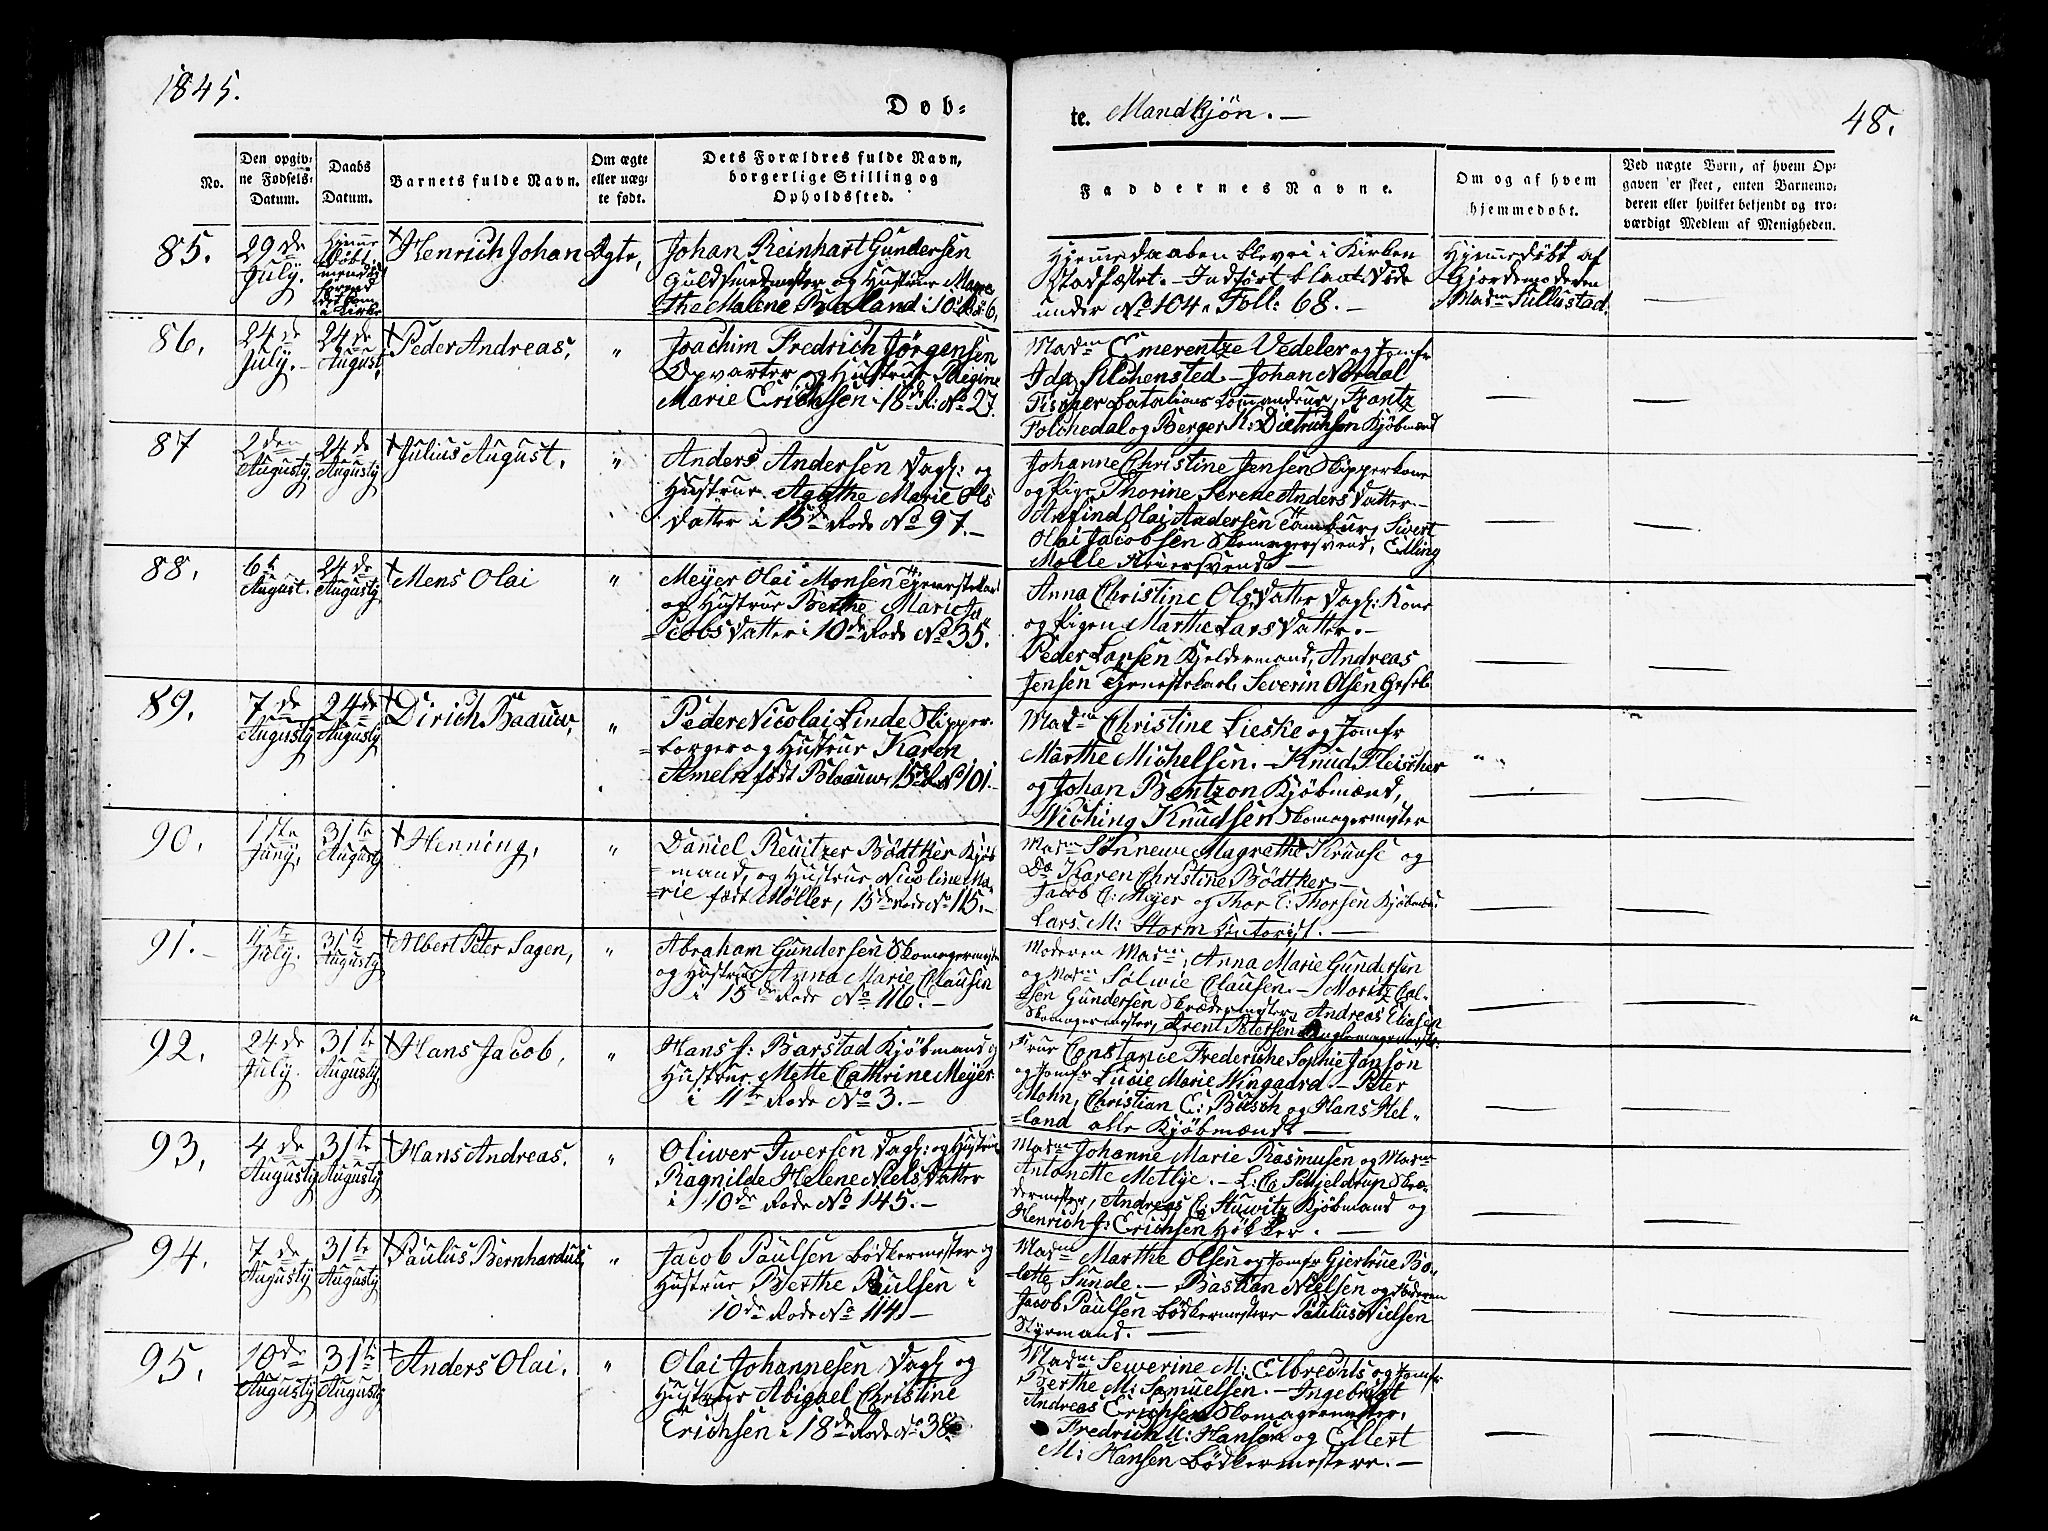 1845.
Døb-
te. Mandkjön. –
48.
No.
Den opgiv-
ne Fødsels-
Datum.
Daabs
Datum.
Barnets fulde Navn.
Om ægte
eller uæg-
te født.
Dets Forældres fulde Navn,
borgerlige Stilling og
Opholdssted.
Faddernes Navne.
Om og af hvem
hjemmedøbt.
Ved uægte Børn, af hvem Op-
gaven er skeet, enten Barnemo-
deren eller hvilket bekjendt og tro-
værdigt Medlem af Menigheden.
85.
29 de
July.
Hjemme
Døbt
men død
forend
det kom
i Kirke
Henrich Johan
Ægte,
Johan Reinhart Gundersen
Guldsmedmester og Hustrue Marga
tha Malene Bøeland i 10 de R: 6,
Hjemmedaaben blev ei i Kirken
Stadfæstet. – Indført blant Døde
under No 104. Foll: 68. –
Hjemmedøbt af
Gjordemoderen
Madm Sullustad.
86.
24 de
July. –
24 de
August,
Peder Andreas,
"
Joachim Fredrich Jørgensen
Opvarter og Hustrue Regine
Marie Erichsen i 18 de R: No 27.
Madm Emerentze Vedeler og Jomfr
Ida Silchensted. – Johan Nordal
Fischer Batalions Commandeur, Frantz
Folchedal og Berger H: Dietrichsen Kjøbmænd
87
2 den
Augusty,
24 de
Augusty
Julius August,
"
Anders Andersen Dagl: og
Hustrue Agathe Marie Ols
Datter i 15 de Rode No 97. –
Johanne Christine Jensen Skipperkone
og Pige Thorine Serene Anders Datter. –
Arfind Olai Andersen Tambur, Sivert
Olai Jacobsen Skomagersvend, Edling
Molle Svend –
88.
6 te
August.
24 de
Augusty
Mens Olai
"
Meyer Olai Monsen Tjenestekarl
og Hustrue Berthe Marie Ja
cobs Datter i 10 de Rode No 35.
Anna Christine Ols Datter Dagl: Kone
og Pigen Marthe Lars Datter. –
Peder Larsen Kjeldermand, Andreas
Jensen Tjenestekarl, Severin Olsen Gesel
89.
7 de
Augusty
24 de
Augusty
Dirich Baauw,
"
Peder Nicolai Linde Skipper-
borger og Hustrue Karen
Amelr født Blaauw, 15 de R No 101. –
Madm Christine Lieske og Jomfr
Marthe Michelsen. – Knud Fleischer
og Johan Bentzon Kjøbmænd,
Wiching Knudsen Skomagermester
90.
1 ste
Juny,
31 te
Augusty
Henning,
"
Daniel Reuitzer Bødtker Kjøb
mand, og Hustrue Nicoline Ma-
rie født Møller, 15 de Rode No 115. –
Madm Sønnewe Magrethe Kruuse og
Do Karen Christine Bødtker –
Jacob C: Meyer og Thor C: Thorsen Kjøbmænd
Lars M: Storm Contorist. –
91. –
11 te
July.
31 te
Augusty
Albert Peter Sagen,
"
Abraham Gundersen Skomagermester
og Hustrue Anna Marie Clausen
i 15 de Rode No 116. –
Moderen Madm Anna Marie Gundersen
og Madm Sølwie Clausen. – Moritz Cal-
sen Gundersen Skrædermester, Andreas Eliasen
Skomagermester, Arent Petersen
92.
24 de
July.
31 te
Augusty,
Hans Jacob,
"
Hans J: Barstad Kjøbmand og
Hustrue Mette Cathrine Meyer
i 11 te Rode No 3. –
Frue Constance Frederiche Sophie Janson
og Jomfr Lucie Marie Wingaard – Peter
Mohn, Christian C: Büsch og Hans Hel-
land alle Kjøbmænd –
93,
4 de
Augusty
31 te
Augusty
Hans Andreas.
"
Oliwer Iwersen Dagl: og Hustrue
Ragnilde Helene Niels Datter
i 10 de Rode No 145. –
Madm Johanne Marie Rasmusen og Madm
Antonette Metlye. – L: C: Schjeldrup Skræ-
dermester, Andreas C: Stuwitz Kjøbmand og
Henrich J: Erichsen Høkker. –
94.
7 de
Augusty
31 te
Augusty
Paulus Bernhardus,
"
Jacob Paulsen Bødkermester og
Hustrue Berthe Paulsen i
10 de Rode No 114 –
Madm Marthe Olsen og Jomfr Gjertrue Bo-
lette Sunde. – Bastian Nielsen og Faderen
Jacob Paulsen Bødkermestere Paulus Nielsen
Styrmand. –
95.
10 de
Augusty
31 te
Augusty
Anders Olai.
"
Olai Johannesen Dagl: og
Hustrue Abigael Christine
Erichsen i 18 de Rode No 38.
Madm Sewerine M: Elbrechts og Jomfr
Berthe M: Samuelsen. – Ingebrigt
Andreas Erichsen Skomagermester,
Fredrich M: Hansen og Ellert
M: Hansen Bødkermestere. –